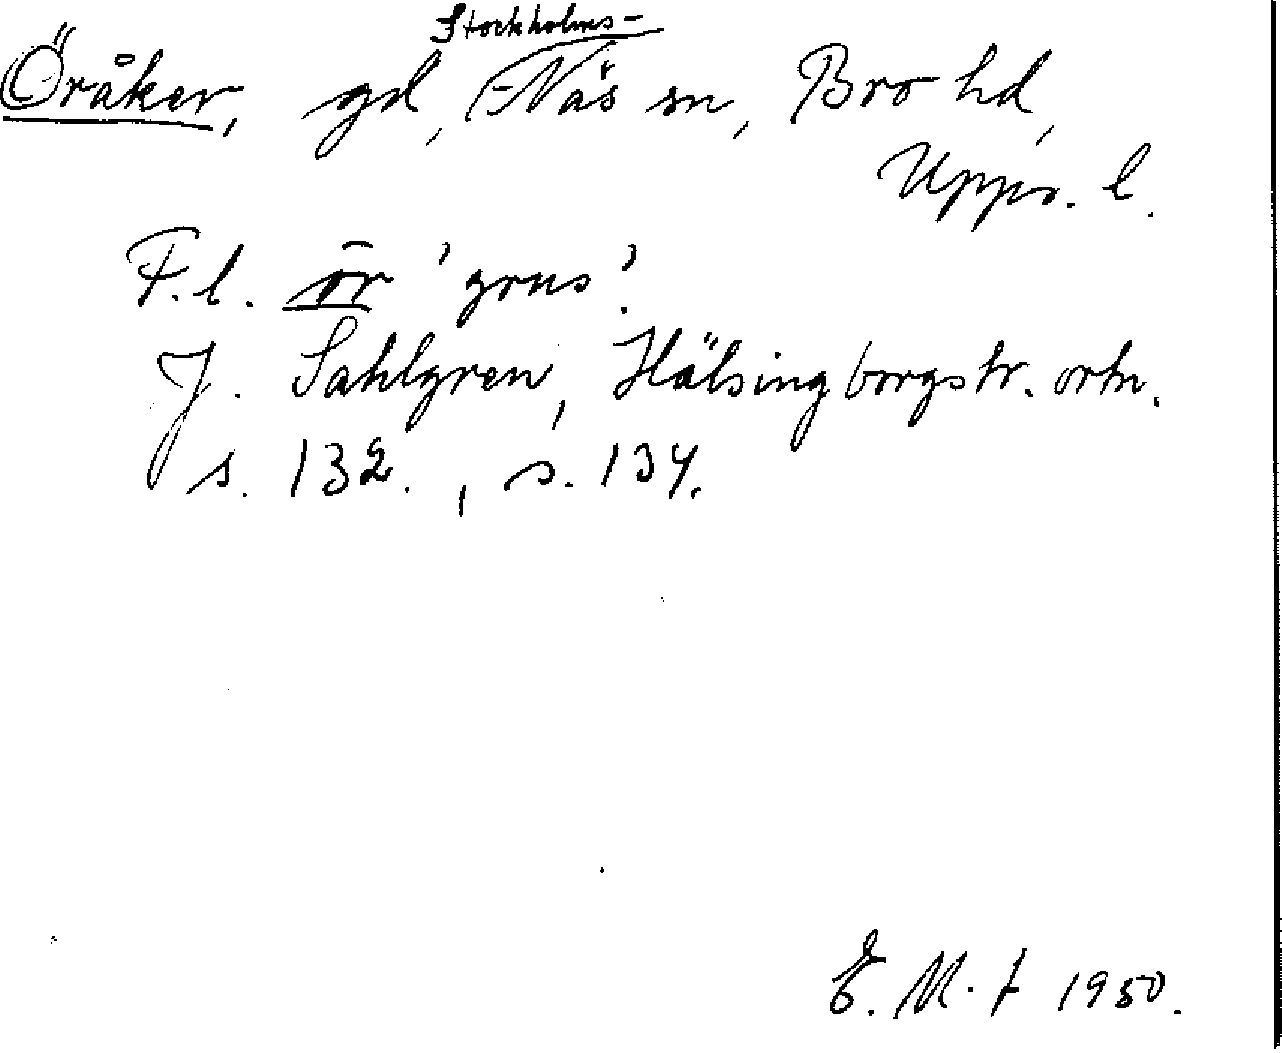 Öråker, gd, Stockholms-Näs sn, Bro hd,
Upps. l.
F.l. ör 'grus'.
J. Sahlgren, Hälsingborgstr. ortn.
s. 132., s. 134.
E. M. 1950.